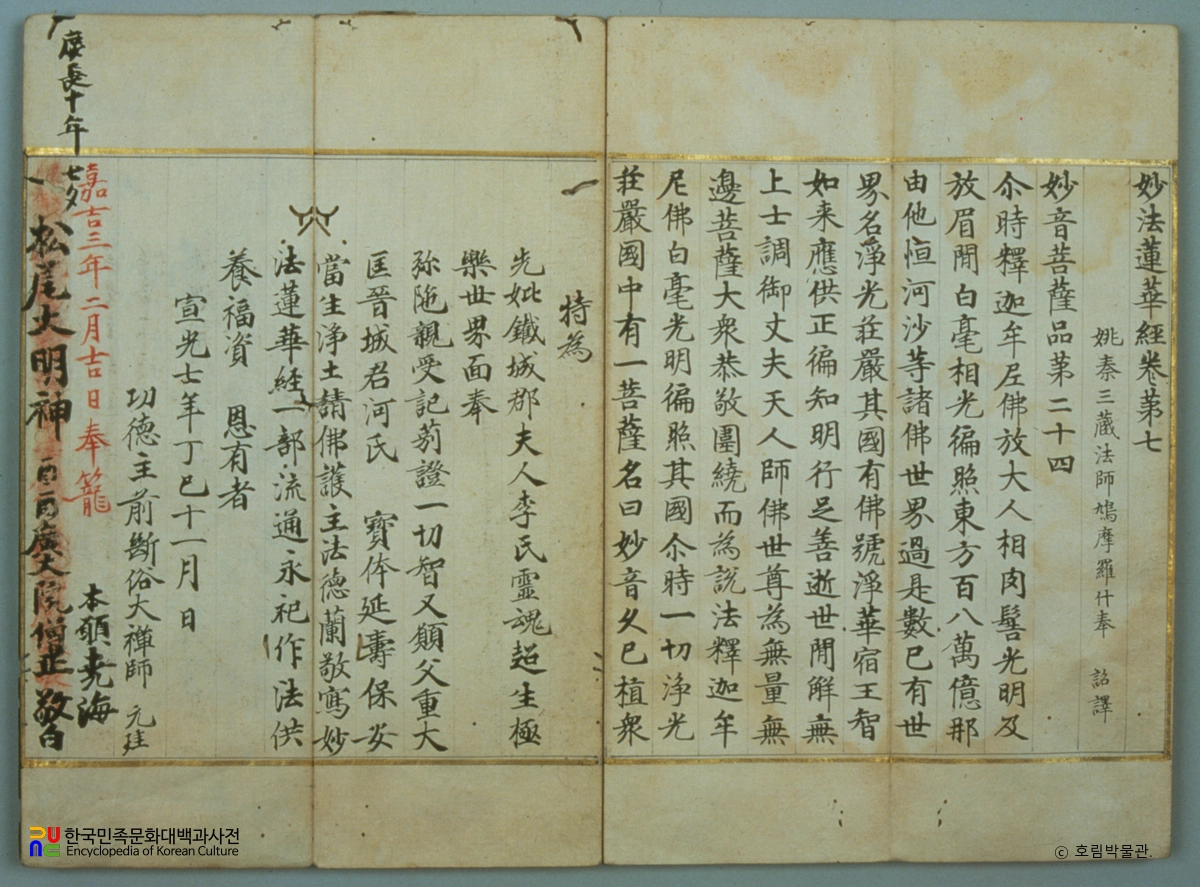 妙法蓮華經卷第七
姚秦三藏法師鳩摩羅什奉 詔譯
妙音菩薩品第二十四
尒時釋迦牟尼佛放大人相肉髻光明及
放眉間白毫相光徧照東方百八萬億那
由他恒河沙等諸佛世界過是數已有世
界名淨光莊嚴其國有佛號淨華宿王智
如来應供正徧知明行足善逝世間解無
上士調御丈夫天人師佛世尊為無量無
邊菩薩大衆恭敬圍繞而為說法釋迦牟
尼佛白毫光明徧照其國尒時一切淨光
莊嚴國中有一菩薩名曰妙音久已植衆
特為
先妣鐵城郡夫人李氏靈魂超生極
樂世界面奉
弥陁親受記莂證一切智又願父重大
匡晉城君河氏 寶体延壽保安
當生淨土請佛護主法德蘭敬寫妙
法蓮華経一部流通永祀作法供
養福資 恩有者
宣光七年丁巳十一月 日
功德主前斷俗大禅師 元珪
嘉吉三年二月吉日奉籠
本願堯海
慶長十年
七夕
松尾大明神
敬白
한국민족문화대백과사전
Encyclopedia of Korean Culture
ⓒ 호림박물관.